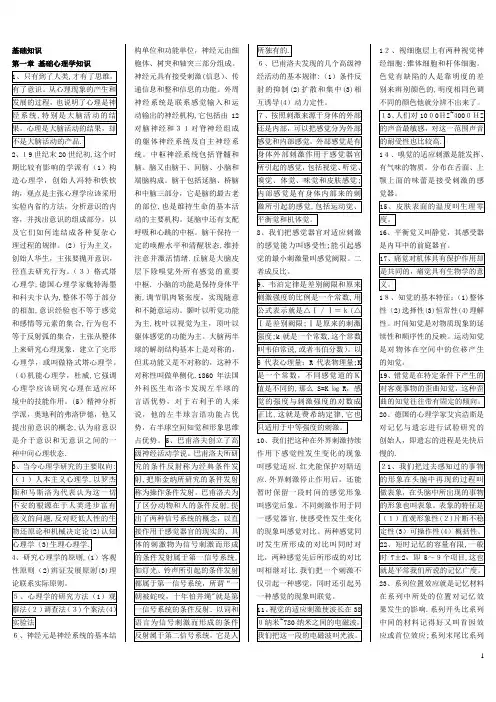 基础知识
第一章 基础心理学知识
1、只有到了人类,才有了思维,
有了意识。从心理现象的产生和
发展的过程, 也说明了心理是神
经系统,特别是大脑活动的结
果。心理是大脑活动的结果, 却
不是大脑活动的产品.
2、19世纪末20世纪初,这个时
期比较有影响的学派有(1)构
造心理学, 创始人冯特和铁钦
纳, 观点是主张心理学应该采用
实验内省的方法, 分析意识的内
容, 并找出意识的组成部分, 以
及它们如何连结成各种复杂心
理过程的规律。(2)行为主义,
创始人华生, 主张要抛开意识,
径直去研究行为。(3)格式塔
心理学,德国心理学家魏特海墨
和科夫卡认为,整体不等于部分
的相加,意识经验也不等于感觉
和感情等元素的集合,行为也不
等于反射弧的集合, 主张从整体
上来研究心理现象, 建立了完形
心理学, 或叫做格式塔心理学。
(4)机能心理学, 杜威,它强调
心理学应该研究心理在适应环
境中的技能作用。(5)精神分析
学派, 奥地利的弗洛伊德, 他又
提出前意识的概念,认为前意识
是介于意识和无意识之间的一
种中间心理状态.
3、当今心理学研究的主要取向:
(1)人本主义心理学,以罗杰
斯和马斯洛为代表认为这一切
不安的根源在于人类进步富有
意义的问题,反对贬低人性的生
物还原论和机械决定论(2)认知
心理学(3)生理心理学.
4、研究心理学的原则,(1)客观
性原则(2)辨证发展原则(3)理
论联系实际原则。
5、心理学的研究方法(1)观
察法(2)调查法(3)个案法(4)
实验法
6、神经元是神经系统的基本结
构单位和功能单位,神经元由细
胞体、树突和轴突三部分组成。
神经元具有接受刺激(信息)、传
递信息和整和信息的功能。外周
神经系统是联系感觉输入和运
动输出的神经机构, 它包括由12
对脑神经和31对脊神经组成
的躯体神经系统及自主神经系
统。中枢神经系统包括脊髓和
脑。脑又由脑干、间脑、小脑和
端脑构成。脑干包括延脑, 桥脑
和中脑三部分, 它是脑的最古老
的部位,也是维持生命的基本活
动的主要机构。延脑中还有支配
呼吸和心跳的中枢。脑干保持一
定的唤醒水平和清醒状态,维持
注意并激活情绪.丘脑是大脑皮
层下除嗅觉外所有感觉的重要
中枢。小脑的功能是保持身体平
衡,调节肌肉紧张度, 实现随意
和不随意运动。额叶以听觉功能
为主,枕叶以视觉为主, 顶叶以
躯体感觉的功能为主。大脑两半
球的解剖结构基本上是对称的,
但其功能又是不对称的, 这种不
对称性叫做单侧化.1860年法国
外科医生布洛卡发现左半球的
言语优势。对于右利手的人来
说, 他的左半球言语功能占优
势,右半球空间知觉和形象思维
占优势。5、巴甫洛夫创立了高
级神经活动学说。巴甫洛夫所研
究的条件反射称为经典条件发
射,把斯金纳所研究的条件发射
称为操作条件发射。巴甫洛夫为
了区分动物和人的条件反射,提
出了两种信号系统的概念,以直
接作用于感觉器官的现实的、具
体的刺激物为信号刺激而形成
的条件发射属于第一信号系统,
如灯光、铃声所引起的条件发射
都属于第一信号系统,所谓“一
朝被蛇咬, 十年怕井绳"就是第
一信号系统的条件反射。以词和
语言为信号刺激而形成的条件
反射属于第二信号系统。它是人
所独有的.
6、巴甫洛夫发现的几个高级神
经活动的基本规律:(1)条件反
射的抑制(2)扩散和集中(3)相
互诱导(4)动力定性。
7、按照刺激来源于身体的外部
还是内部, 可以把感觉分为外部
感觉和内部感觉。外部感觉是有
身体外部刺激作用于感觉器官
所引起的感觉,包括视觉、听觉、
嗅觉、体觉、味觉和皮肤感觉;
内部感觉是有身体内部来的刺
激所引起的感觉,包括运动觉、
平衡觉和机体觉.
8、我们把感觉器官对适应刺激
的感觉能力叫感受性;能引起感
觉的最小刺激量叫感觉阈限。二
者成反比。
9、韦伯定律是差别阈限和原来
刺激强度的比例是一个常数,用
公式表示就是△I/I＝k(△
I是差别阈限;I是原来的刺激
强度;k就是一个常数,这个常数
叫韦伯常说,或者韦伯分数).以
S代表心理量;R代表物理量;K
是一个常数,不同感觉道的K
值是不同的,那么S=K lg R。感
觉的强度与刺激强度的对数成
正比,这就是费希纳定律,它也
只适用于中等强度的刺激。
10、我们把这种在外界刺激持续
作用下感觉性发生变化的现象
叫感觉适应.红光能保护对暗适
应.外界刺激停止作用后, 还能
暂时保留一段时间的感觉形象
叫感觉后象。不同刺激作用于同
一感觉器官,使感受性发生变化
的现象叫感觉对比。两种感觉同
时发生所形成的对比叫同时对
比, 两种感觉先后所形成的对比
叫相继对比.我们把一个刺激不
仅引起一种感觉, 同时还引起另
一种感觉的现象叫联觉。
11.视觉的适应刺激使波长在38
0纳米~780纳米之间的电磁波,
我们把这一段的电磁波叫光波。
12、视细胞层上有两种视觉神
经细胞:锥体细胞和杆体细胞。
色觉有缺陷的人是靠明度的差
别来辨别颜色的,明度相同色调
不同的颜色他就分辨不出来了。
13、人们对1000HZ~4000HZ
的声音最敏感, 对这一范围声音
的耐受性也比较高.
14、嗅觉的适应刺激是能发挥、
有气味的物质。分布在舌面、上
颚上面的味蕾是接受刺激的感
觉器。
15、皮肤表面的温度叫生理零
度。
16、平衡觉又叫静觉, 其感受器
是内耳中的前庭器官。
17、痛觉对机体具有保护作用却
是共同的,痛觉具有生物学的意
义。
18、知觉的基本特征:(1)整体
性(2)选择性(3)恒常性(4)理解
性。时间知觉是对物质现象的延
续性和顺序性的反映。运动知觉
是对物体在空间中的位移产生
的知觉。
19、错觉是在特定条件下产生的
对客观事物的歪曲知觉, 这种歪
曲的知觉往往带有固定的倾向。
20、德国的心理学家艾宾浩斯是
对记忆与遗忘进行试验研究的
创始人, 即遗忘的进程是先快后
慢的.
21、我们把过去感知过的事物
的形象在头脑中再现的过程叫
做表象, 在头脑中所出现的事物
的形象也叫表象。表象的特征是
(1)直观形象性(2)片断不稳
定性(3)可操作性(4)概括性。
22、短时记忆的容量有限,一般
时7±2, 即5-9个项目,这也
就是平常我们所说的记忆广度。
23、系列位置效应就是记忆材料
在系列中所处的位置对记忆效
果发生的影响.系列开头比系列
中间的材料记得好又叫首因效
应或首位效应;系列末尾比系列
1